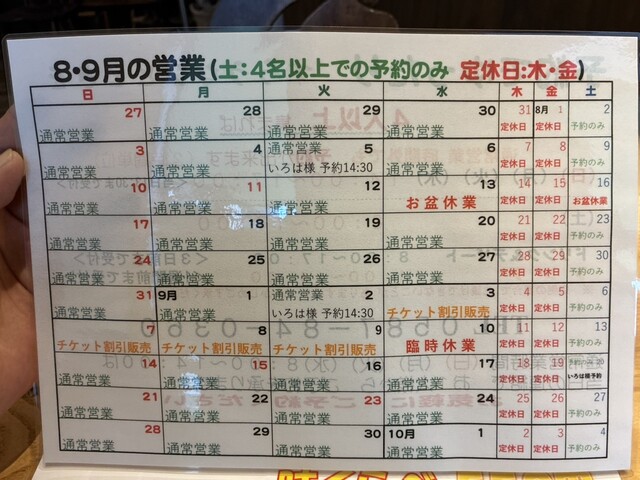 8・9月の営業(土:4名以上での予約のみ 定休日:木・金)
日 月 火 水 木 金 土
27 28 29 30 31 8月 1 2
通常営業 通常営業 通常営業 通常営業 定休日 定休日 予約のみ
3 4 5 6 7 8 9
通常営業 通常営業 通常営業 いろは様 予約14:30 通常営業 定休日 定休日 予約のみ
10 11 12 13 14 15 16
通常営業 通常営業 通常営業 お盆休業 定休日 定休日 お盆休業
17 18 19 20 21 22 23
通常営業 通常営業 通常営業 通常営業 定休日 定休日 予約のみ
24 25 26 27 28 29 30
通常営業 通常営業 通常営業 通常営業 定休日 定休日 予約のみ
31 9月 1 2 3 4 5 6
通常営業 通常営業 通常営業 いろは様 予約14:30 チケット割引販売 定休日 定休日 予約のみ
7 8 9 10 11 12 13
チケット割引販売 チケット割引販売 チケット割引販売 臨時休業 定休日 定休日 予約のみ
14 15 16 17 18 19 20
通常営業 通常営業 通常営業 通常営業 定休日 定休日 予約のみ いろは様予約
21 22 23 24 25 26 27
通常営業 通常営業 通常営業 通常営業 定休日 定休日 予約のみ
28 29 30 10月 1 2 3 4
通常営業 通常営業 通常営業 通常営業 定休日 定休日 予約のみ